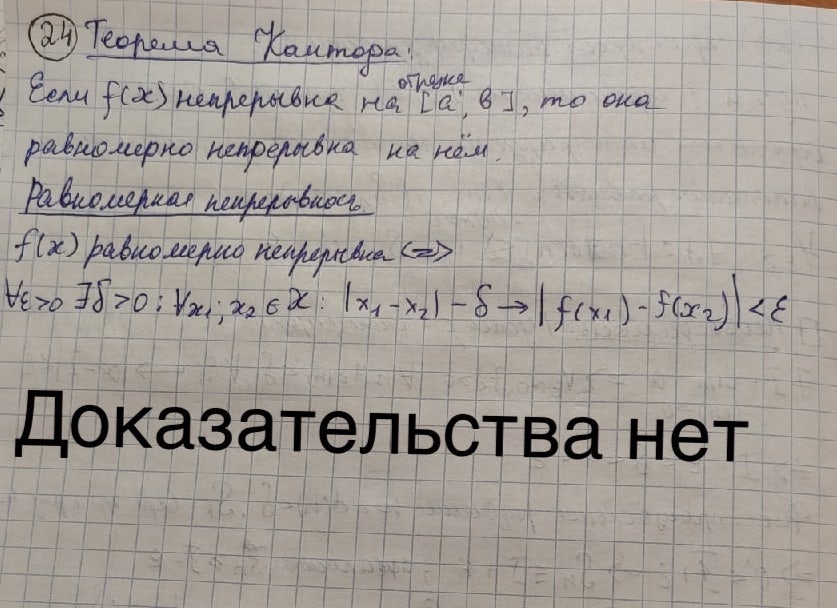 24 Теорема Кантора:
Если f(x) непрерывна на отрезке [a; b], то она
равномерно непрерывна на нём.
Равномерная непрерывность
f(x) равномерно непрерывна <=>
∀ε>0 ∃δ>0: ∀x₁; x₂ ∈ X: |x₁ - x₂| - δ → |f(x₁) - f(x₂)| < ε
Доказательства нет